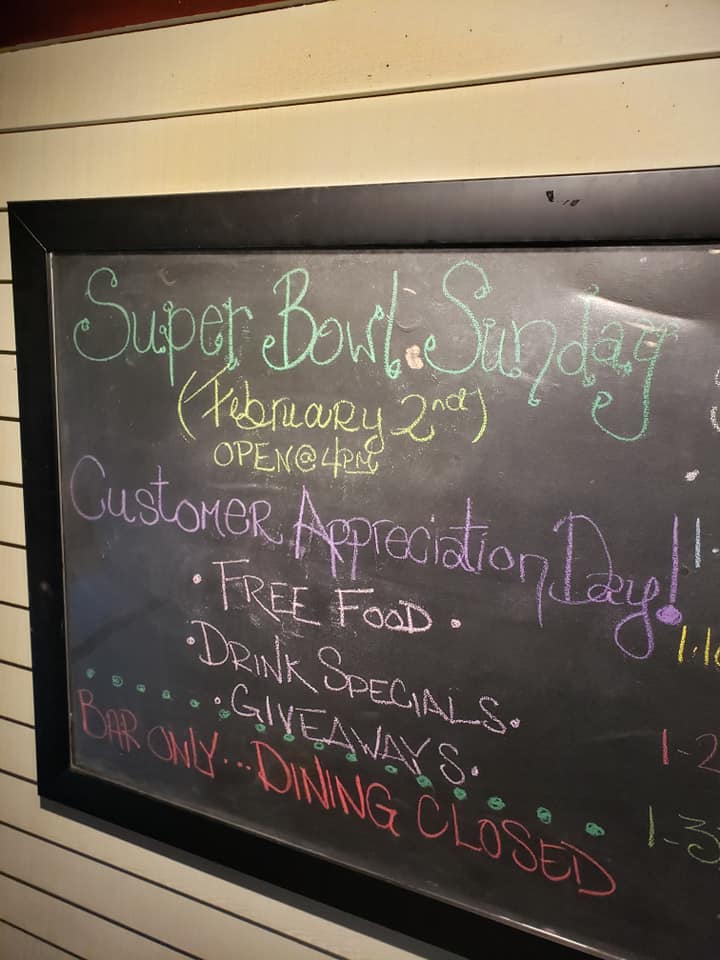 Super Bowl Sunday
(February 2nd)
OPEN@4PM
Customer Appreciation Day!
• FREE FOOD •
• DRINK SPECIALS •
• GIVEAWAYS •
BAR ONLY... DINING CLOSED